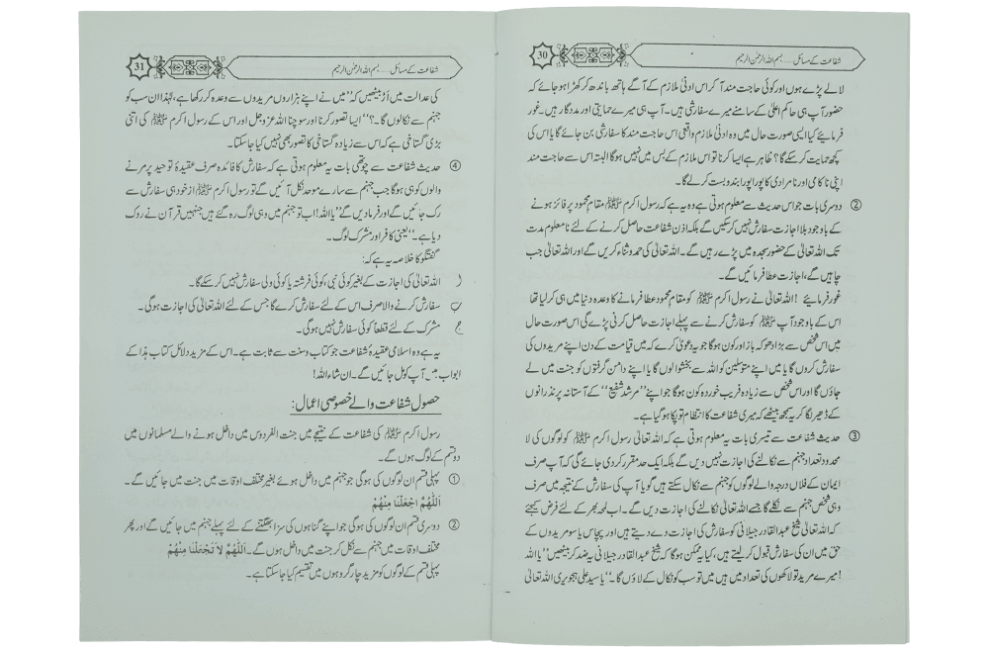 شفاعت کے مسائل .... بسم اللہ الرحمٰن الرحیم
30
لالے پڑے ہوں اور کوئی حاجت مند آکر اس ادنیٰ ملازم کے آگے ہاتھ باندھ کر کھڑا ہو جائے کہ
حضور آپ ہی حاکم اعلیٰ کے سامنے میرے سفارشی ہیں۔ آپ ہی میرے حمایتی اور مددگار ہیں۔ غور
فرمایئے کیا ایسی صورت حال میں وہ ادنیٰ ملازم واقعی اس حاجت مند کا سفارشی بن جائے گا یا اس کی
کچھ حمایت کر سکے گا؟ ظاہر ہے ایسا کرنا تو اس ملازم کے بس میں نہیں ہوگا البتہ اس سے حاجت مند
اپنی ناکامی اور نامرادی کا پورا پورا بندوبست کر لے گا۔
② دوسری بات جو اس حدیث سے معلوم ہوتی ہے وہ یہ ہے کہ رسول اکرم ﷺ مقام محمود پر فائز ہونے
کے باوجود بلا اجازت سفارش نہیں کر سکیں گے بلکہ اذن شفاعت حاصل کرنے کے لئے نامعلوم مدت
تک اللہ تعالیٰ کے حضور سجدہ میں پڑے رہیں گے۔ اللہ تعالیٰ کی حمد و ثناء کریں گے اور اللہ تعالیٰ جب
چاہیں گے، اجازت عطا فرمائیں گے۔
غور فرمایئے ! اللہ تعالیٰ نے رسول اکرم ﷺ کو مقام محمود عطا فرمانے کا وعدہ دنیا میں ہی کر لیا تھا
اس کے باوجود آپ ﷺ کو سفارش کرنے سے پہلے اجازت حاصل کرنی پڑے گی اس صورت حال
میں اس شخص سے بڑا دھوکہ باز اور کون ہوگا جو یہ دعویٰ کرے کہ میں قیامت کے دن اپنے مریدوں کی
سفارش کروں گا یا میں اپنے متوسلین کو اللہ سے بخشوا لوں گا یا اپنے دامن گرفتوں کو جنت میں لے
جاؤں گا اور اس شخص سے زیادہ فریب خوردہ کون ہوگا جو اپنے ”مرشد شفیع“ کے آستانہ پر نذرانوں
کے ڈھیر لگا کر یہ سمجھ بیٹھے کہ میری شفاعت کا انتظام تو پکا ہو گیا ہے۔
③ حدیث شفاعت سے تیسری بات یہ معلوم ہوتی ہے کہ اللہ تعالیٰ رسول اکرم ﷺ کو لوگوں کی لا
محدود تعداد جہنم سے نکالنے کی اجازت نہیں دیں گے بلکہ ایک حد مقرر کر دی جائے گی کہ آپ صرف
ایمان کے فلاں درجہ والے لوگوں کو جہنم سے نکال سکتے ہیں گویا آپ کی سفارش کے نتیجہ میں صرف
وہی شخص جہنم سے نکلے گا جسے اللہ تعالیٰ نکالنے کی اجازت دیں گے۔ اب لمحہ بھر کے لئے فرض کیجئے
کہ اللہ تعالیٰ شیخ عبدالقادر جیلانی کو سفارش کی اجازت دے دیتے ہیں اور پچاس یا سو مریدوں کے
حق میں ان کی سفارش قبول کر لیتے ہیں، کیا یہ ممکن ہوگا کہ شیخ عبدالقادر جیلانی یہ ضد کر بیٹھیں ”یا اللہ
! میرے مرید تو لاکھوں کی تعداد میں ہیں میں تو سب کو نکال کے لاؤں گا۔“ یا سید علی ہجویری اللہ تعالیٰ
شفاعت کے مسائل .... بسم اللہ الرحمٰن الرحیم
31
کی عدالت میں اڑ بیٹھیں کہ ”میں نے اپنے ہزاروں مریدوں سے وعدہ کر رکھا ہے، لہٰذا ان سب کو
جہنم سے نکالوں گا۔؟“ ایسا تصور کرنا اور سوچنا اللہ عزوجل اور اس کے رسول اکرم ﷺ کی اتنی
بڑی گستاخی ہے کہ اس سے زیادہ گستاخی کا تصور بھی نہیں کیا جا سکتا۔
④ حدیث شفاعت سے چوتھی بات یہ معلوم ہوتی ہے کہ سفارش کا فائدہ صرف عقیدۂ توحید پر مرنے
والوں کو ہی ہوگا جب جہنم سے سارے موحد نکل آئیں گے تو رسول اکرم ﷺ از خود ہی سفارش سے
رک جائیں گے اور فرما دیں گے ”یا اللہ! اب تو جہنم میں وہی لوگ رہ گئے ہیں جنہیں قرآن نے روک
دیا ہے۔“ یعنی کافر اور مشرک لوگ۔
گفتگو کا خلاصہ یہ ہے کہ:
ا اللہ تعالیٰ کی اجازت کے بغیر کوئی نبی، کوئی فرشتہ یا کوئی ولی سفارش نہیں کر سکے گا۔
ب سفارش کرنے والا صرف اس کے لئے سفارش کرے گا جس کے لئے اللہ تعالیٰ کی اجازت ہوگی۔
ج مشرک کے لئے قطعاً کوئی سفارش نہیں ہوگی۔
یہ ہے وہ اسلامی عقیدۂ شفاعت جو کتاب و سنت سے ثابت ہے۔ اس کے مزید دلائل کتاب ہذا کے
ابواب میں آپ کو مل جائیں گے۔ ان شاء اللہ!
حصول شفاعت والے خصوصی اعمال:
رسول اکرم ﷺ کی شفاعت کے نتیجے میں جنت الفردوس میں داخل ہونے والے مسلمانوں میں
دو قسم کے لوگ ہوں گے۔
① پہلی قسم ان لوگوں کی ہوگی جو جہنم میں داخل ہوئے بغیر مختلف اوقات میں جنت میں جائیں گے۔
اَللّٰهُمَّ اجْعَلْنَا مِنْهُمْ
② دوسری قسم ان لوگوں کی ہوگی جو اپنے گناہوں کی سزا بھگتنے کے لئے پہلے جہنم میں جائیں گے اور پھر
مختلف اوقات میں جہنم سے نکل کر جنت میں داخل ہوں گے۔ اَللّٰهُمَّ لَا تَجْعَلْنَا مِنْهُمْ
پہلی قسم کے لوگوں کو مزید چار گروہوں میں تقسیم کیا جا سکتا ہے۔